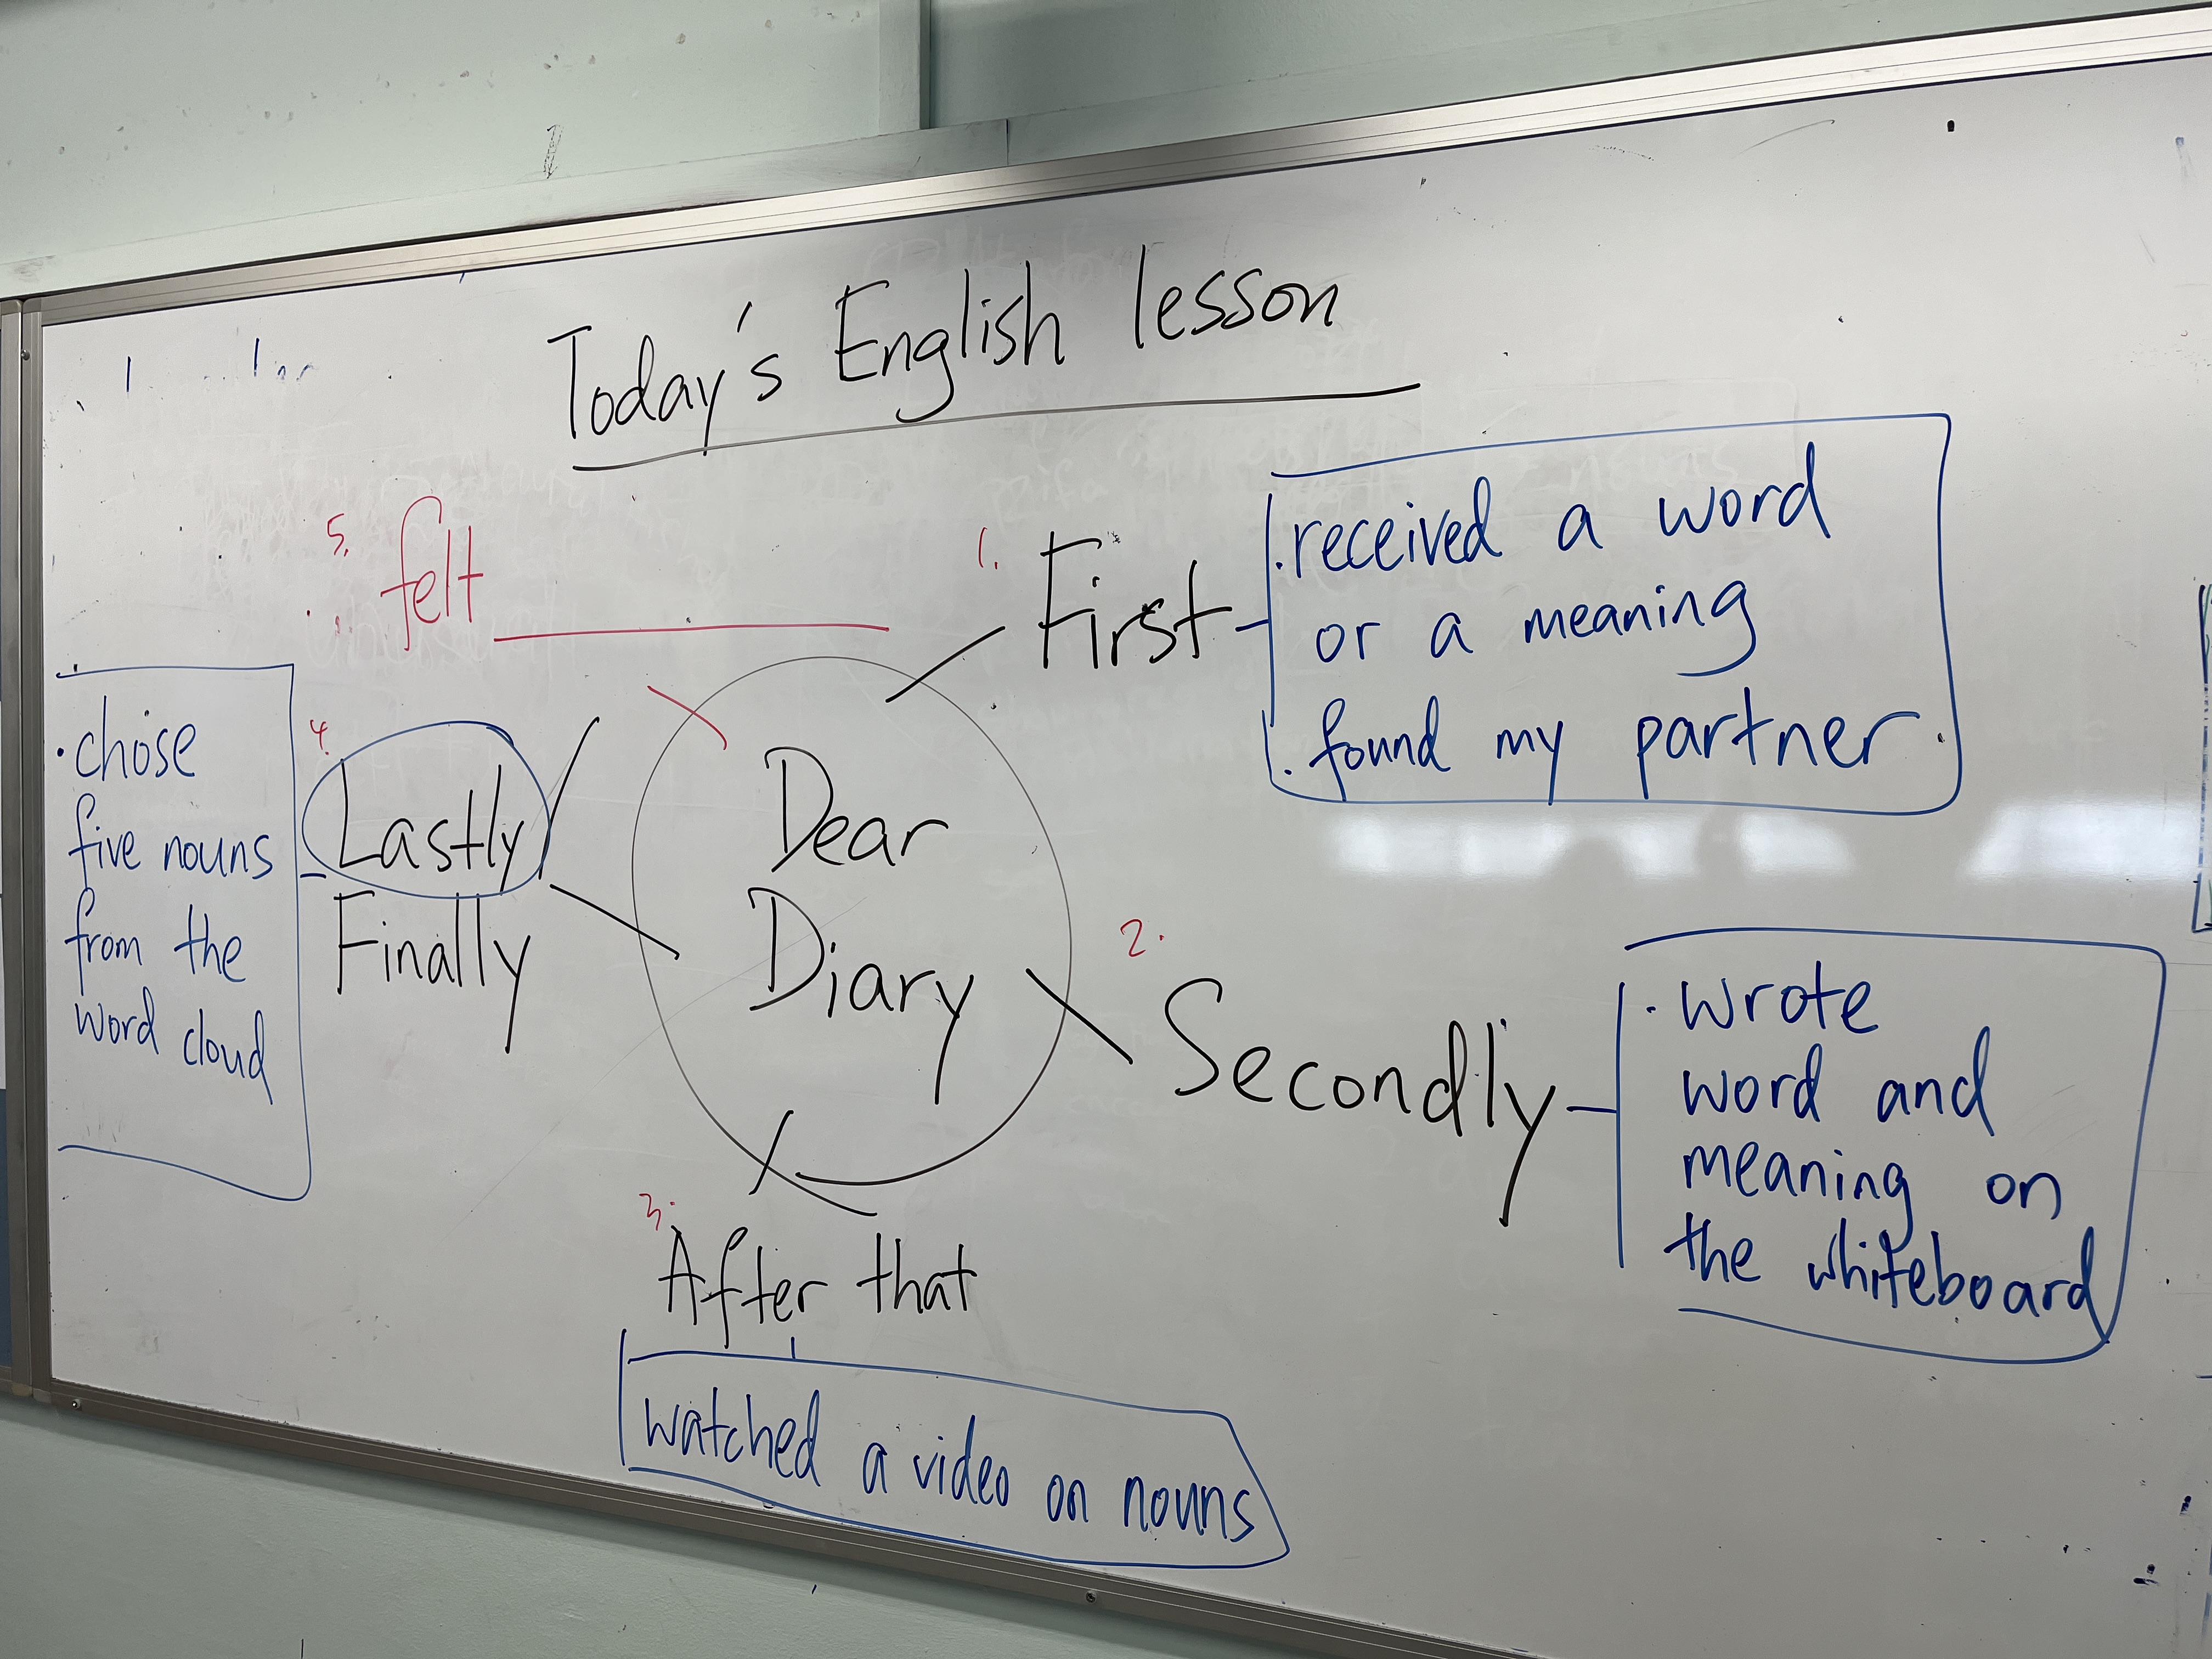 Today's English lesson
1. First
. received a word
or a meaning
. found my partner.
2.
Secondly
. wrote
word and
meaning on
the whiteboard
3.
After that
watched a video on nouns
4.
Lastly
Finally
. chose
five nouns
from the
word cloud
5. felt
Dear
Diary